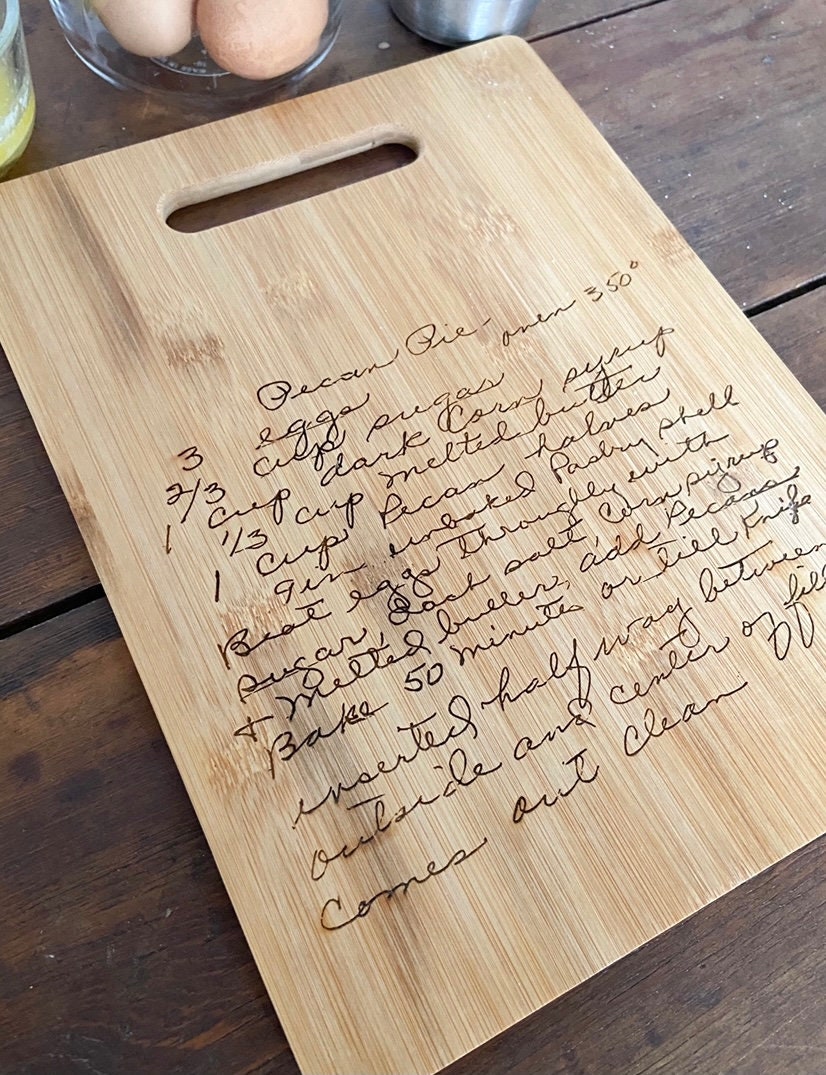 Pecan Pie oven 350°
3 eggs
2/3 cup sugar
1 cup dark Corn syrup
1/3 cup melted butter
1 cup Pecan halves
9in unbaked Pastry shell
Beat eggs throughly with
sugar, dash salt, Corn syrup
+ Melted butter, add Pecans
Bake 50 minutes or till Knife
inserted half way between
outside and center of fill
comes out clean